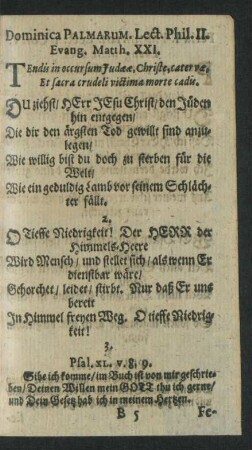 Dominica PALMARUM. Lect. Phil. II.
Evang. Matth. XXI.
TEndis in occursum Judææ, Christe, catervæ,
Et sacra crudeli victima morte cadis.
DU ziehst/ HErr JEsu Christ/ den Jüden
hin entgegen/
Die dir den ärgsten Tod gewillt sind anzu-
legen/
Wie willig bist du doch zu sterben für die
Welt/
Wie ein geduldig Lamb vor seinem Schläch-
ter fällt.
2.
O Tieffe Niedrigkeit! Der HERR der
Himmels-Heere
Wird Mensch/ und stellet sich/ als wenn Er
dienstbar wäre/
Gehorchet/ leidet/ stirbt. Nur daß Er uns
bereit
In Himmel freyen Weg. O tieffe Niedrig-
keit!
3.
Psal. XL. v. 8. 9.
Sihe ich komme/ im Buch ist von mir geschrie-
ben/ Deinen Willen mein GOTT thu ich gerne/
und Dein Gesetz hab ich in meinem Hertzen.
B 5 Fe-